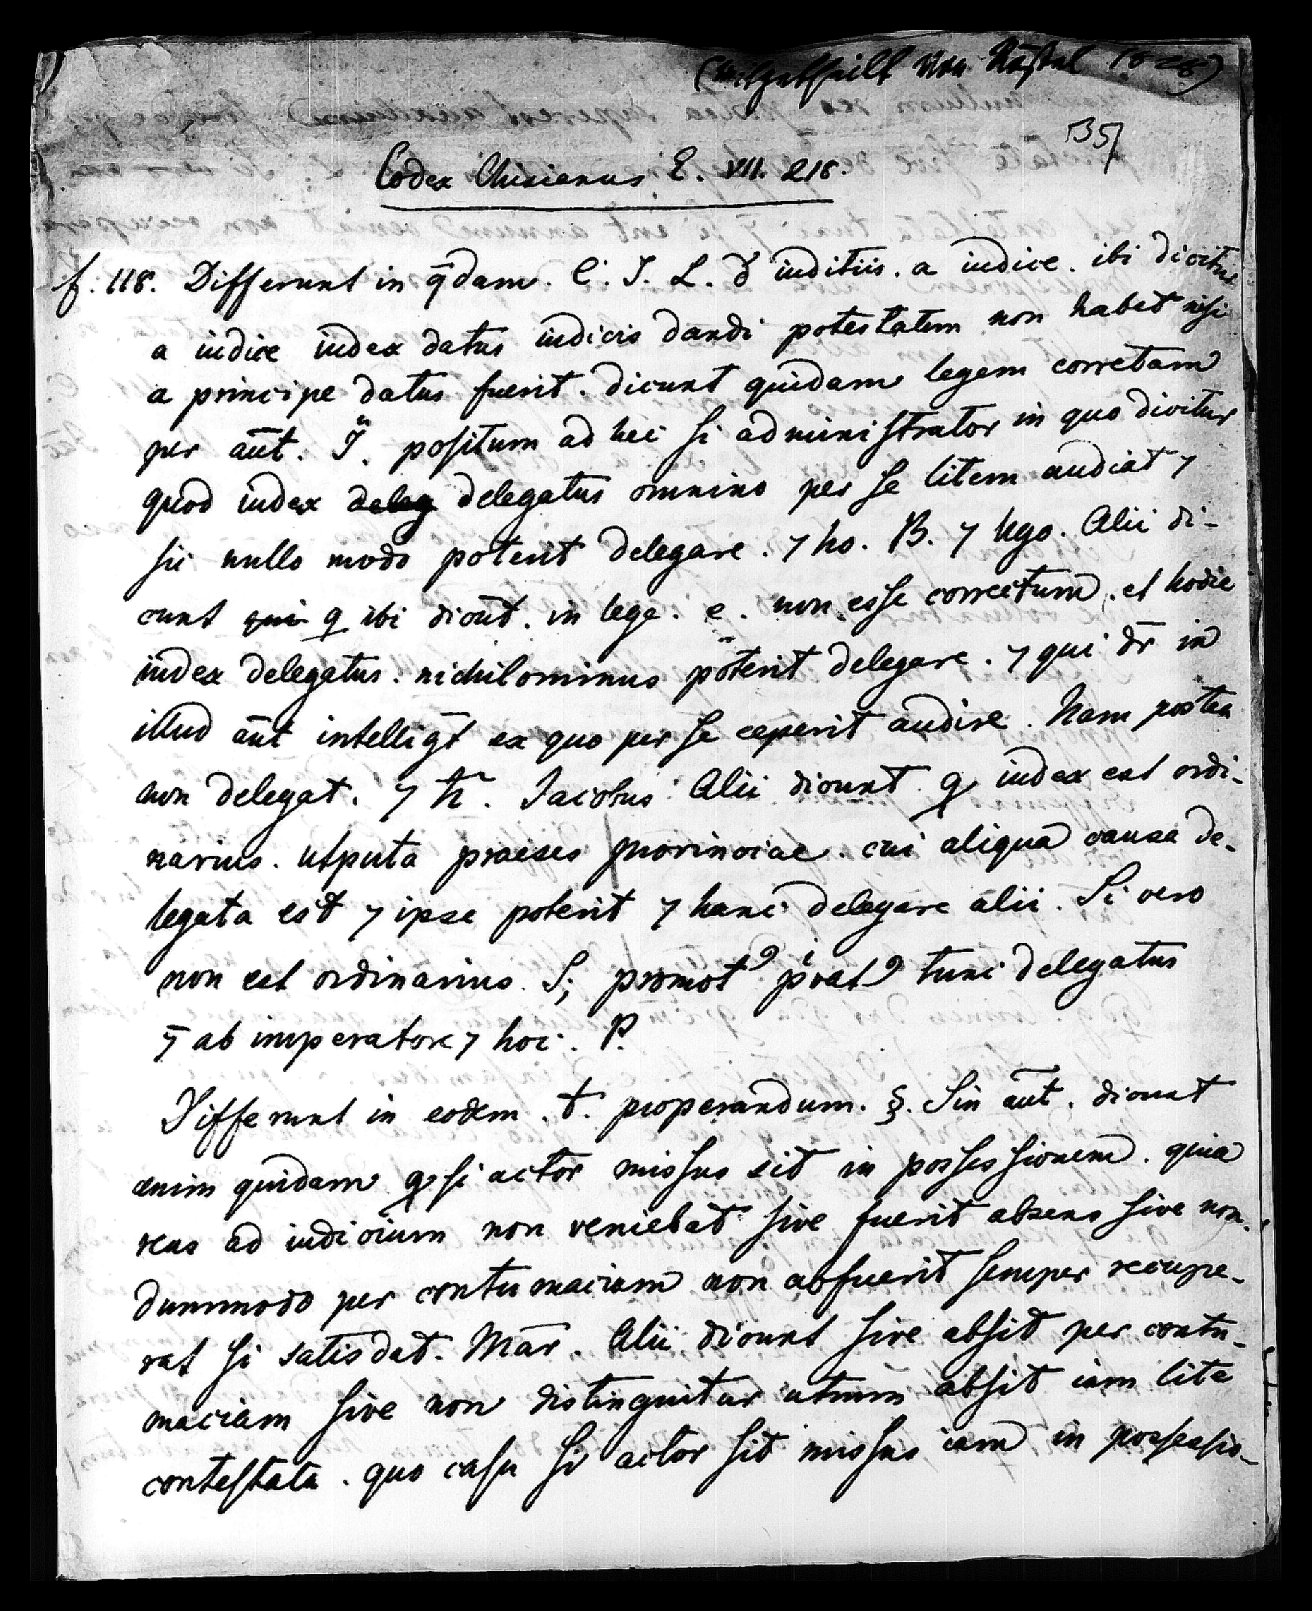 (mitgetheilt von 18
35
Codex Chisianus E. VII. 218.
f. 118. Differunt in q̄dam. C. J. L. đ iuditiis. a iudice. ibi dicitur
a iudice iudex datus iudicis dandi potestatem non habet nisi
a principe datus fuerit. dicunt quidam legem corretam
per aūt. J. positum ad hec si administrator in quo dicitur
quod iudex deleg delegatus omnino per se litem audiat 7
sic nullo modo poterit delegare. 7 ho. B. 7 Ugo. Alii di-
cunt qui q ibi diciūt. in lege. e. non esse correctum. et hodie
iudex delegatus. nichilominus poterit delegare. 7 qui dr in
illud aūt intelligt ex quo per se ceperit audire. Nam postea
non delegat. 7 h̄. Jacobus Alii dicunt q iudex est ordi-
narius. utputa praeses provinciae. cui aliqua causa de-
legata est 7 ipse poterit 7 hanc delegare alii. Si vero
non est ordinarius. S; promot9 p̍vat9 tunc delegatus
7̄ ab imperatore 7 hoc. P.
Differunt in eodem. t. properandum. §. Sin aūt. dicunt
enim quidam q si actor missus sit in possessionem. quia
reus ad iudicium non veniebat sive fuerit absens sive non.
dummodo per contumaciam non abfuerit semper recupe-
rat si satisdat. Mār. Alii dicunt sive absit per contu-
maciam sive non distinguitur utrum absit iam lite
contestata. quo casu si actor sit missus iam in possessio-